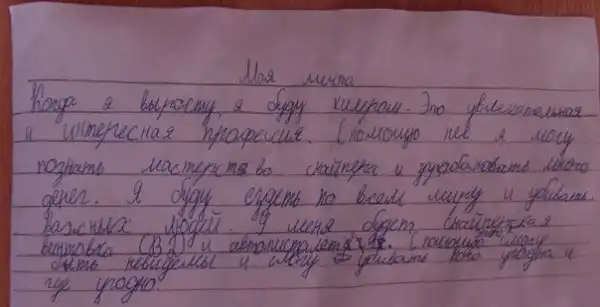 Моя мечта
Когда я вырасту, я буду килером. Это увлекательная
и интересная професия. С помощю неё я могу
познать мастерство снайпера и зарабатовать много
денег. Я буду ездеть по всем миру и убивать
важных людей. У меня будет снайперская
винтовка и автописталет. С помощю смогу
быть невидемы и смогу убивать кого угодна и
где угодно.